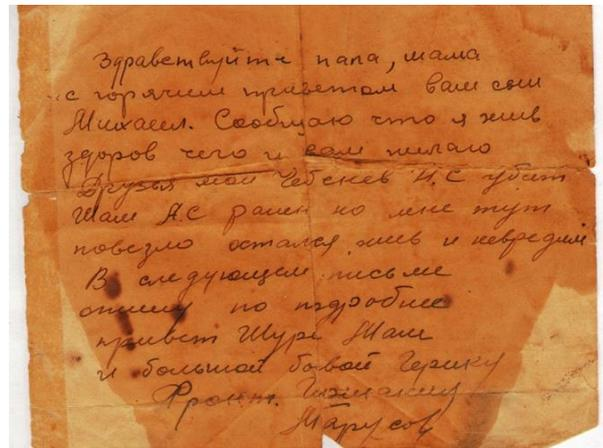 Здравствуйте папа, мама
с горячим приветом вам сын
Михаил. Сообщаю что я жив
здоров чего и вам желаю
Друзья мои Чебенев И.С убит
Шам А.С ранен но мне тут
повезло остался жив и невредим
В следующем письме
опишу по подробнее
привет Шуре Шам
и большой
Фронт.
Марусов